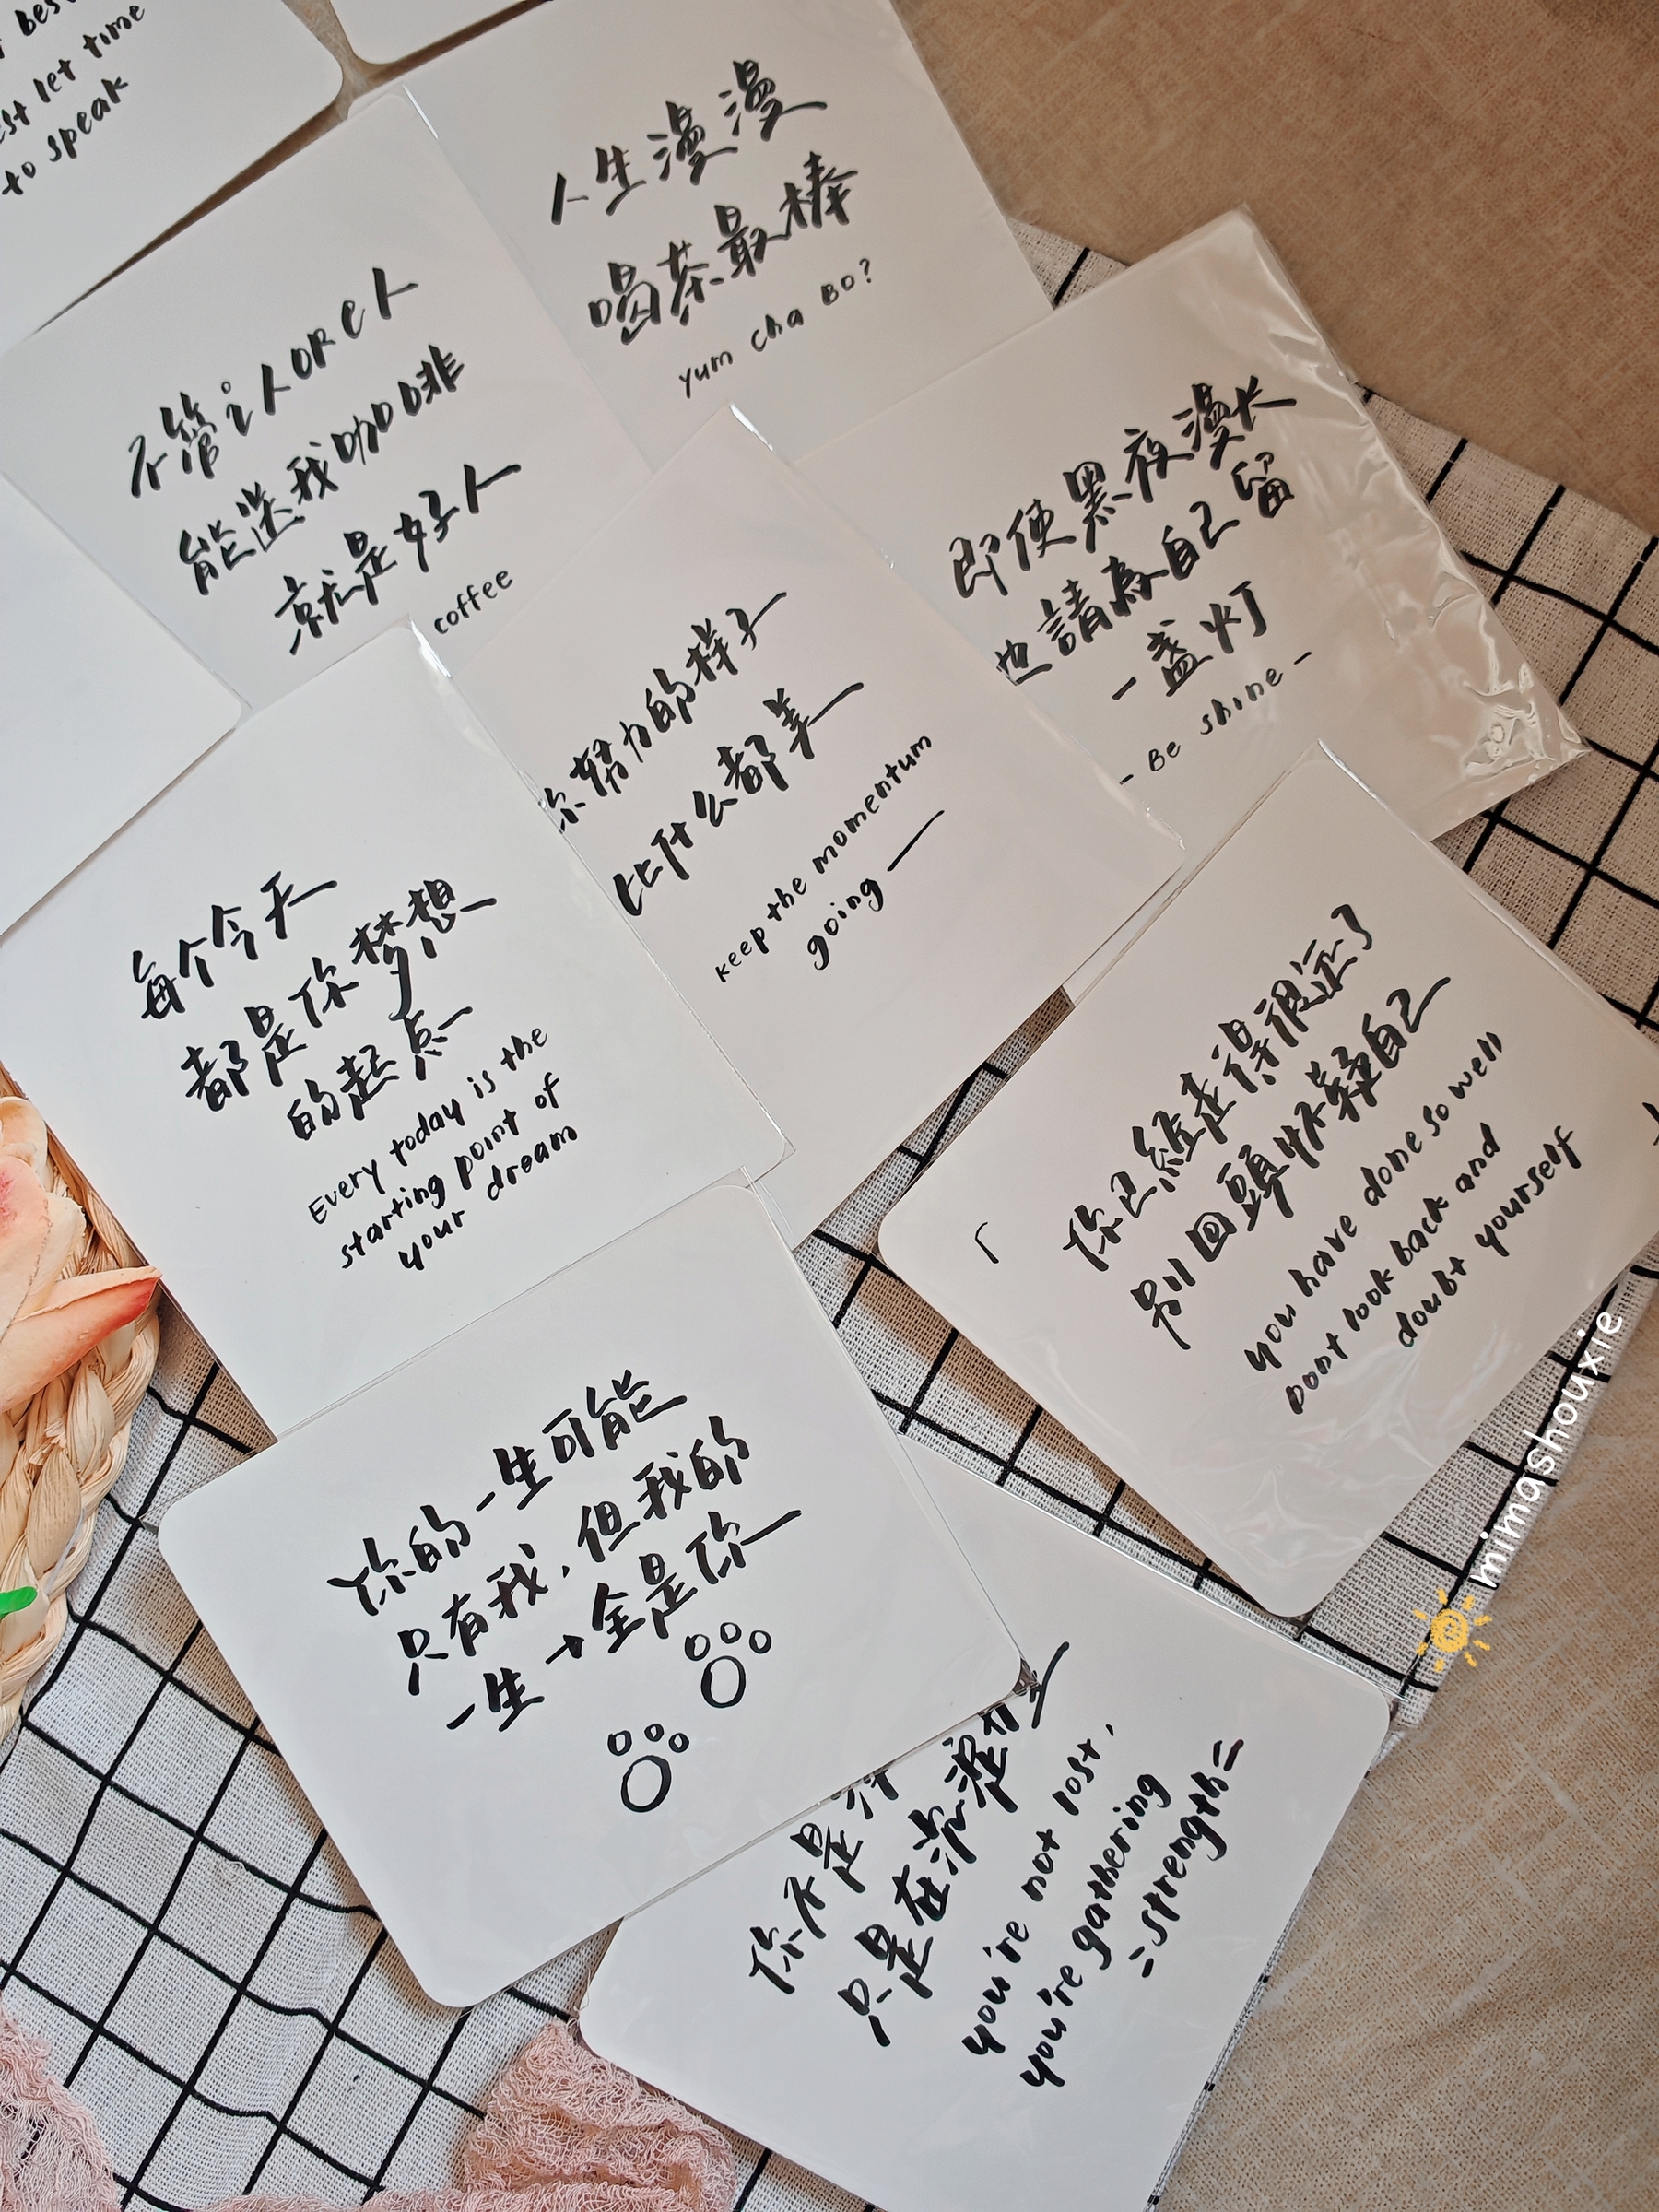 best
est let time
to speak
人生漫漫
喝茶最棒
yum cha BO?
不管i人OR e人
能送我咖啡
就是好人
coffee
即使黑夜漫长
也請為自己留
一盏灯
- Be shine -
你努力的样子
比什么都美
keep the momentum
going
每个今天
都是你梦想
的起点
Every today is the
starting point of
your dream
你已經走得很远了
别回頭怀疑自己
you have done so well
Dont look back and
doubt yourself
你的一生可能
只有我,但我的
一生→全是你
你不是
只是在沉澱
you're not lost,
you're gathering
=strength=
mimashouxie